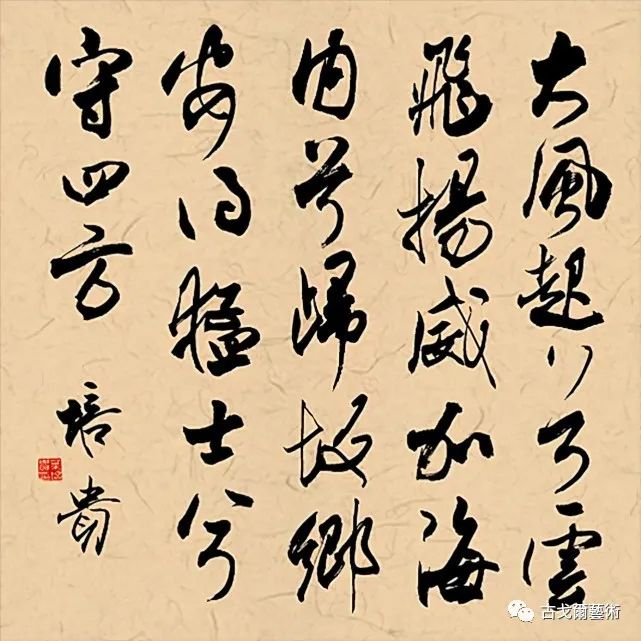 大風起兮雲
飛揚威加海
内兮歸故鄉
安得猛士兮
守四方
培貴
古戈爾藝術